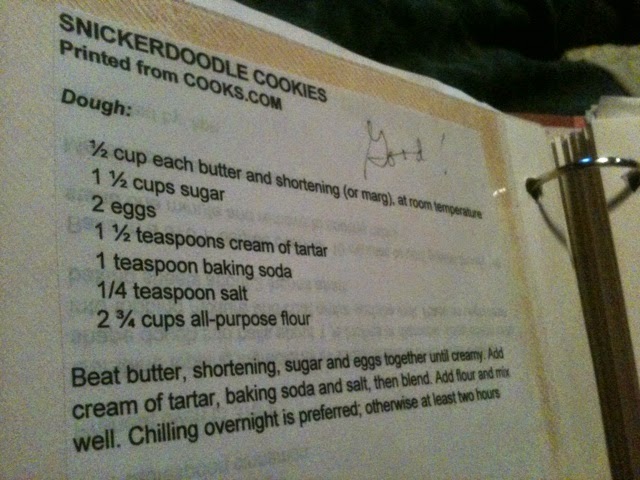 SNICKERDOODLE COOKIES
Printed from COOKS.COM
Good!
Dough:
½ cup each butter and shortening (or marg), at room temperature
1 ½ cups sugar
2 eggs
1 ½ teaspoons cream of tartar
1 teaspoon baking soda
1/4 teaspoon salt
2 ¾ cups all-purpose flour
Beat butter, shortening, sugar and eggs together until creamy. Add
cream of tartar, baking soda and salt, then blend. Add flour and mix
well. Chilling overnight is preferred; otherwise at least two hours